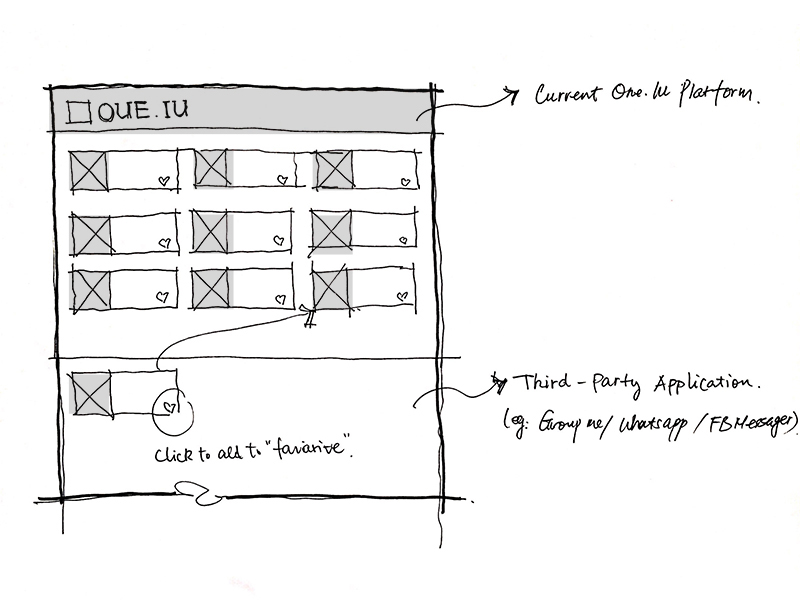 OUE.IU
Current One.IU Platform.
Third-Party Application.
(eg: Groupme/Whatsapp/FBMessager)
Click to add to "favarive".